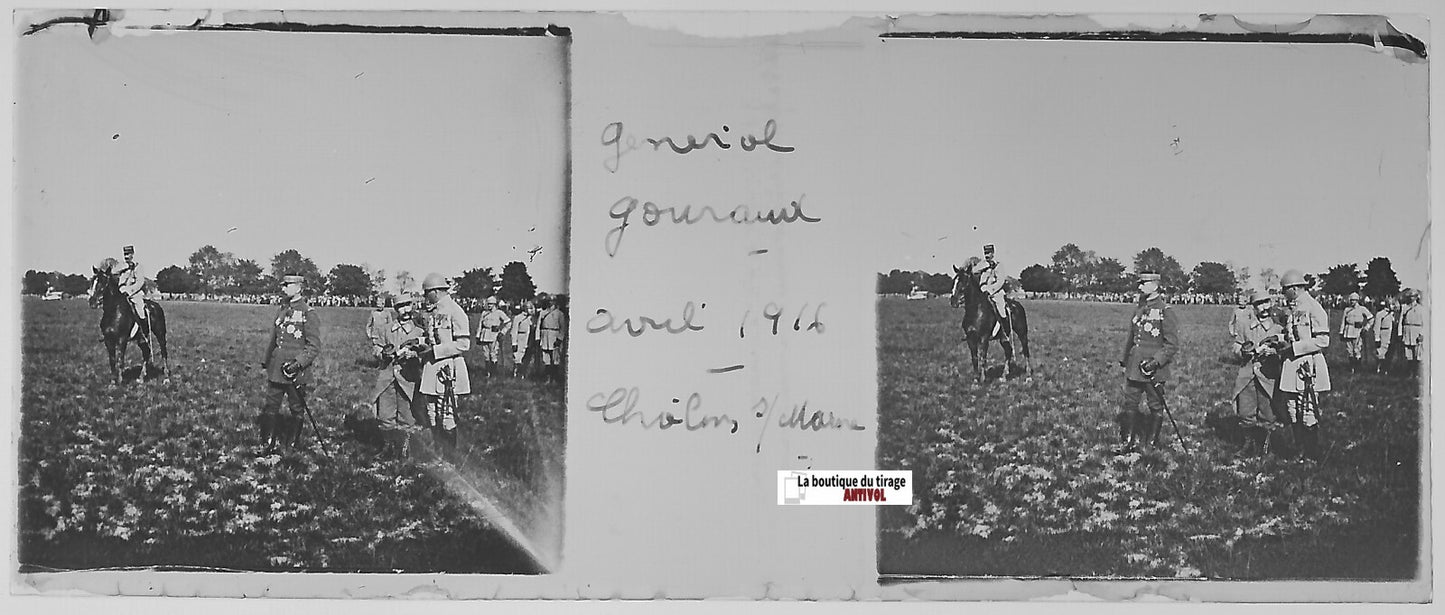 General
Gouraud
avril 1916
Châlons s/Marne
La boutique du tirage
ANTIVOL